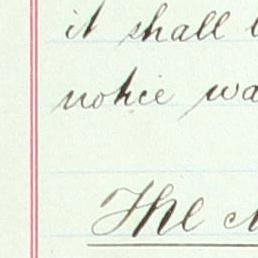 it shall
notice
The